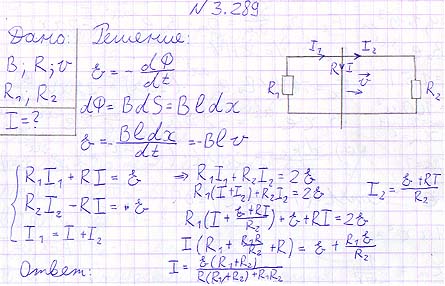 № 3.289
Дано:
B; R; v
R₁, R₂
I = ?
Решение:
ℰ = - dΦ/dt
dΦ = BdS = Bldx
ℰ = - Bldx/dt = -Blv
I₁ I₂
R I
v⃗
R₁ R₂
{ R₁I₁ + RI = ℰ
R₂I₂ - RI = ℰ
I₁ = I + I₂
⇒ R₁I₁ + R₂I₂ = 2ℰ
R₁(I+I₂) + R₂I₂ = 2ℰ
I₂ = (ℰ+RI)/R₂
R₁(I + (ℰ+RI)/R₂) + ℰ + RI = 2ℰ
I(R₁ + R₁R/R₂ + R) = ℰ + R₁ℰ/R₂
Ответ:
I = ℰ(R₁+R₂)/(R(R₁+R₂)+R₁R₂)